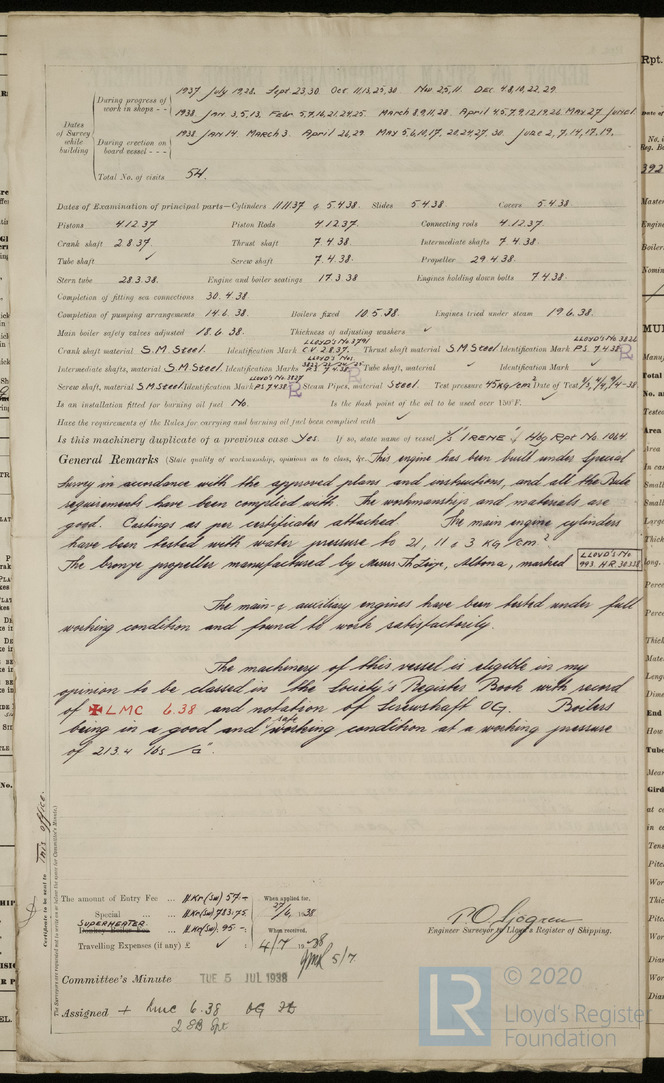 During progress of work in shops - - 1937 July 19,28. Sept 23,30 Oct 11,13,25,30 Nov 25,11 Dec 4,8,10,22,29.
1938 Jan 3,5,13. Febr 5,7,16,21,24,25 March 8,9,11,28 April 4,5,7,9,12,19,26 May 27. June 1.
Dates of Survey while building
During erection on board vessel - - - 1938 Jan 14. March 3. April 26,29. May 5,6,10,17, 20,24,27, 30. June 2, 7,14,17,19.
Total No. of visits 54.
Dates of Examination of principal parts—Cylinders 1.11.37 & 5.4.38. Slides 5.4.38. Covers 5.4.38.
Pistons 4.12.37 Piston Rods 4.12.37. Connecting rods 4.12.37.
Crank shaft 2.8.37. Thrust shaft 7.4.38. Intermediate shafts 7.4.38.
Tube shaft ✓ Screw shaft 7.4.38. Propeller 29.4.38.
Stern tube 28.3.38. Engine and boiler seatings 17.3.38 Engines holding down bolts 7.4.38.
Completion of fitting sea connections 30.4.38.
Completion of pumping arrangements 14.6.38. Boilers fixed 10.5.38. Engines tried under steam 19.6.38.
Main boiler safety valves adjusted 18.6.38. Thickness of adjusting washers ✓
Crank shaft material S.M.Steel. Identification Mark LLOYD'S No 3791 C.V. 2.8.37. Thrust shaft material S.M.Steel Identification Mark LLOYD'S No. 3826 P.S. 7.4.38.
Intermediate shafts, material S.M.Steel. Identification Marks LLOYD'S Nos. P.S. 7.4.38. Tube shaft, material ✓ Identification Mark ✓
Screw shaft, material S.M.Steel Identification Mark LLOYD'S No 3827 P.S. 7.4.38 Steam Pipes, material Steel. Test pressure 45 kg/cm² Date of Test
Is an installation fitted for burning oil fuel No. Is the flash point of the oil to be used over 150°F.
Have the requirements of the Rules for carrying and burning oil fuel been complied with ✓
Is this machinery duplicate of a previous case Yes. If so, state name of vessel S/S "IRENE" & Hbg Rpt No. 1064.
General Remarks (State quality of workmanship, opinions as to class, &c. This engine has been built under Special
Survey in accordance with the approved plans and instructions, and all the Rule
requirements have been complied with. The workmanship and materials are
good. Castings as per certificates attached. The main engine cylinders
have been tested with water pressure to 21, 11 & 3 kg/cm².
The bronze propeller manufactured by Messrs Th. Zeise, Altona, marked LLOYD'S No 993. H.R. 30.3.38
The main- & auxiliary engines have been tested under full
working condition and found to work satisfactorily.
The machinery of this vessel is eligible in my
opinion to be classed in the Society's Register Book with record
of ✠ LMC 6.38 and notation of Screwshaft OG. Boilers
being in a good and safe working condition at a working pressure
of 213.4 lbs/□".
Certificate to be sent to This office.
(The Surveyors are requested not to write on or below the space for Committee's Minute.)
The amount of Entry Fee ... Kr(Sw) 57- When applied for,
Special ... ... Kr(Sw) 783:75 27/6, 1938
SUPERHEATER Donkey Boiler Fee ... Kr(Sw). 95 -. When received,
Travelling Expenses (if any) £ ✓ : 4/7 1938 5/7
P.O. Sjögren
Engineer Surveyor to Lloyd's Register of Shipping.
Committee's Minute TUE 5 JUL 1938
Assigned + Lmc 6.38 OG
2 SB Spt
© 2020
LR Lloyd's Register
Foundation